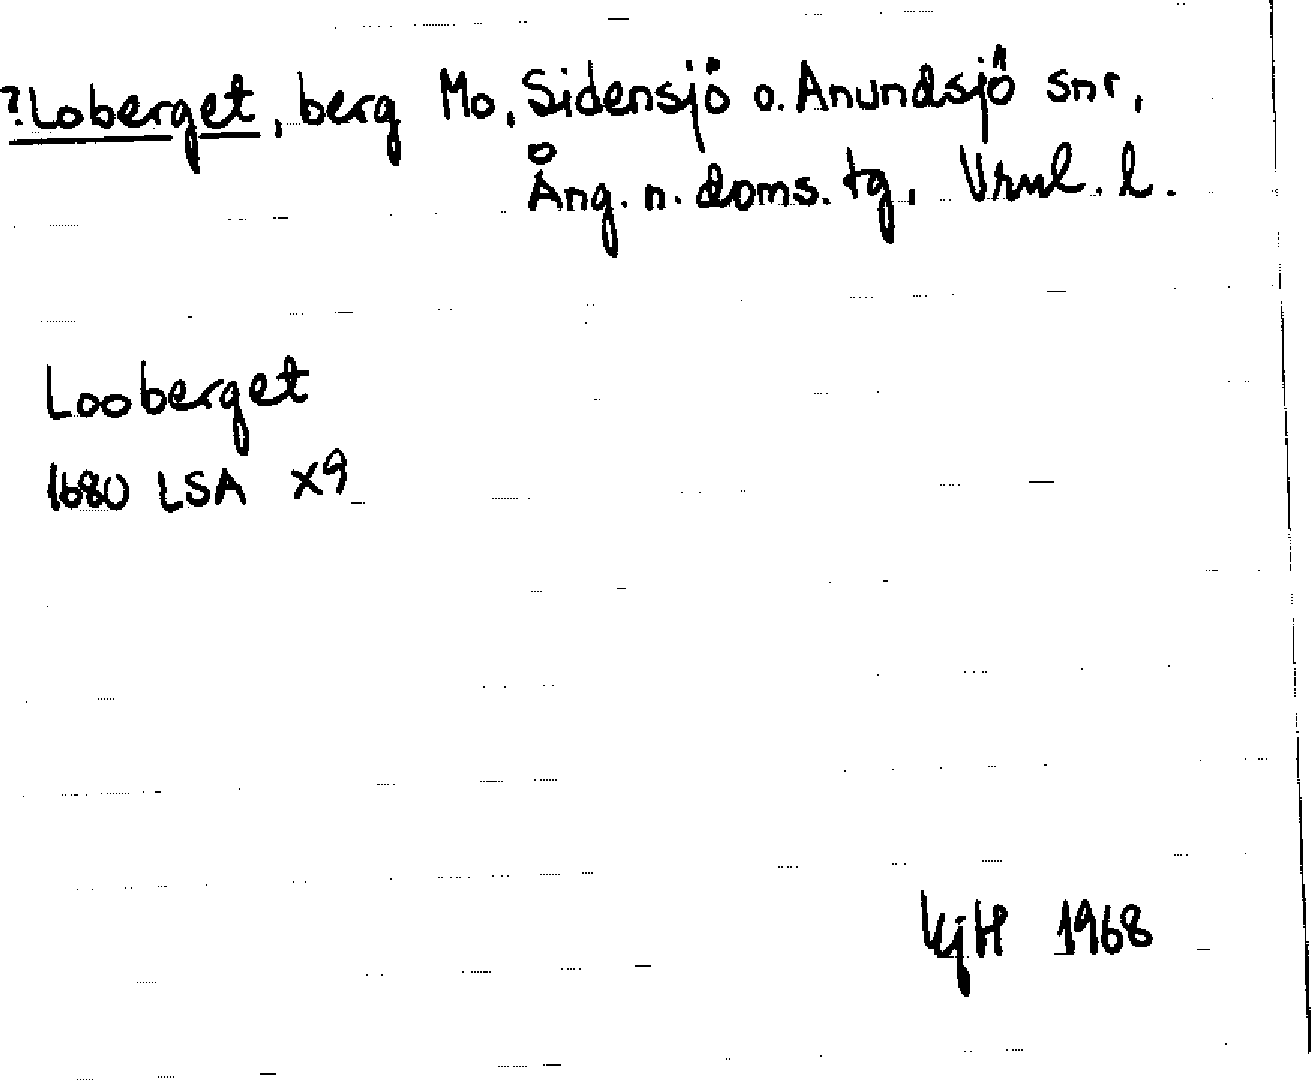 ?Loberget, berg Mo, Sidensjö o. Anundsjö snr,
Ång. n. doms. tg, Vrnl. l.
Looberget
1680 LSA X9
KjH 1968